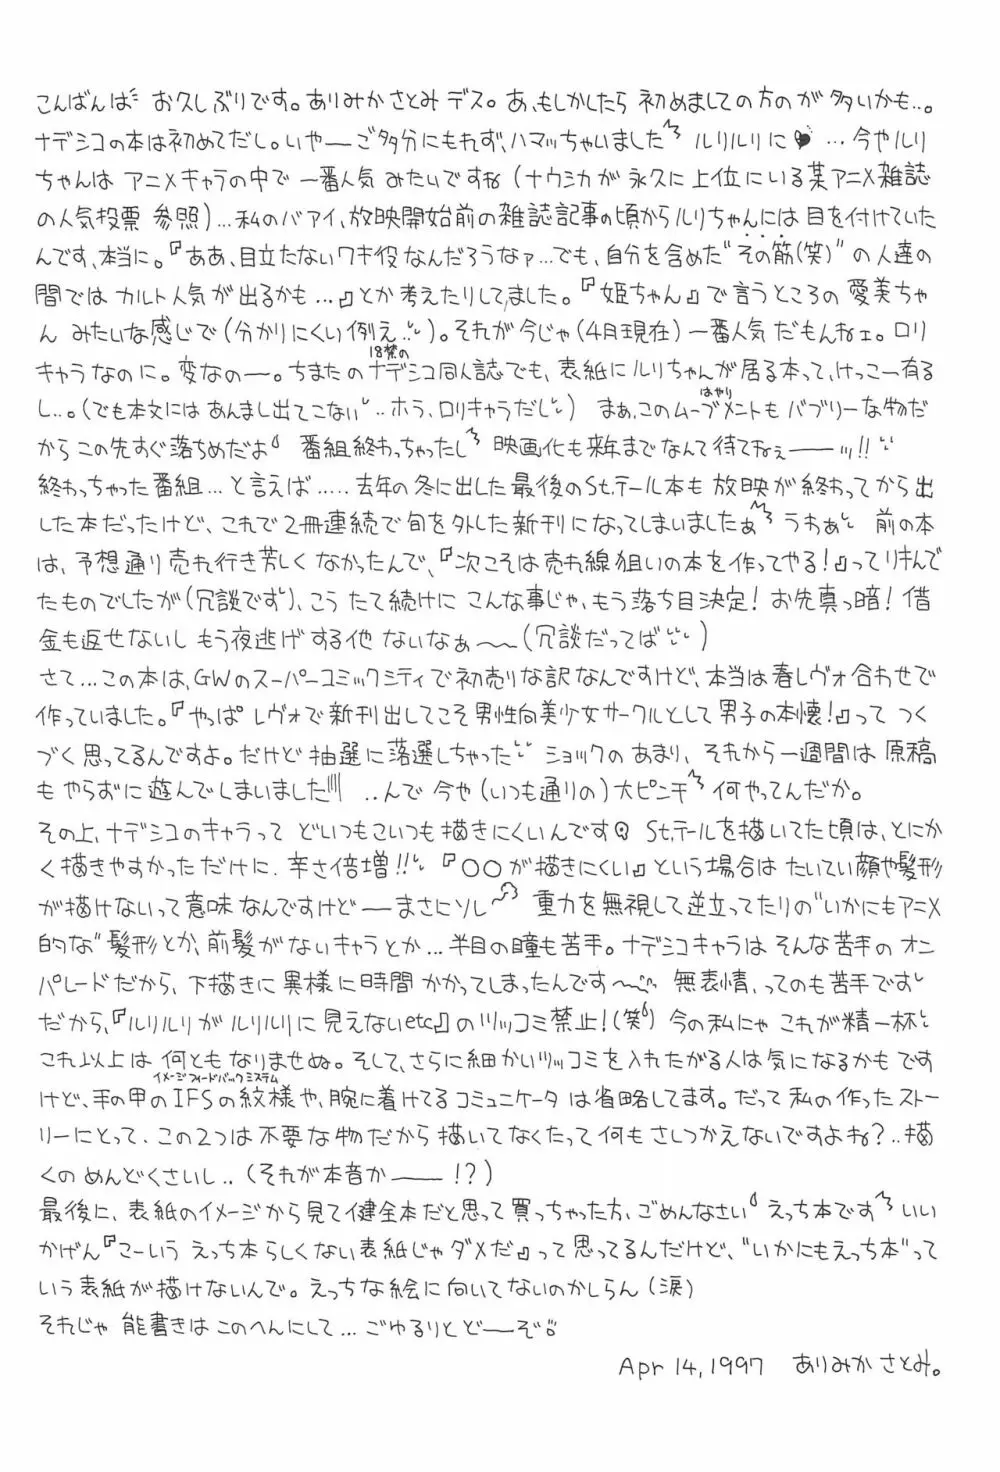 こんばんは お久しぶりです。ありみかさとみデス。あ、もしかしたら 初めましての方のが多いかも..。
ナデシコの本は初めてだし。いや──ご多分にもれず、ハマッちゃいました ルリルリに♥ … 今やルリ
ちゃんは アニメキャラの中で 一番人気 みたいですね (ナウシカが 永久に上位にいる某アニメ雑誌
の人気投票 参照)…私のバアイ、放映開始前の雑誌記事の頃からルリちゃんには 目を付けていた
んです、本当に。『ああ、目立たないワキ役なんだろうなァ…でも、自分を含めた"その筋(笑)"の人達の
間では カルト人気が出るかも…』とか考えたりしてました。『姫ちゃん』で言うところの 愛美ちゃ
ん みたいな感じで(分かりにくい例え..)。それが今じゃ(4月現在) 一番人気だもんねェ。ロリ
18禁の
キャラなのに。変なの─。ちまたのナデシコ同人誌でも、表紙にルリちゃんが居る本って、けっこー有る
はやり
し..。(でも本文には あんまし出てこない..ホラ、ロリキャラだし) まぁ、このムーブメントも バブリーな物だ
からこの先すぐ落ちめだよ 番組終わっちゃったし 映画化も来年までなんて待てねぇ──ッ!!
終わっちゃった番組…と言えば…..去年の冬に出した最後のSt.テール本も 放映が終わってから出
した本だったけど、これで2冊連続で旬を外した新刊になってしまいましたぁ うわぁ 前の本
は、予想通り売れ行き芳しくなかったんで、『次こそは売れ線狙いの本を作ってやる!』ってリキんで
たものでしたが(冗談です)、こう たて続けに こんな事じゃ、もう落ち目決定! お先真っ暗! 借
金も返せないし もう夜逃げする他 ないなぁ〜(冗談だってば)
さて…この本は、GWのスーパーコミックシティで初売りな訳なんですけど、本当は春レヴォ合わせで
作っていました。『やっぱ レヴォで新刊出してこそ男性向美少女サークルとして男子の本懐!』って つく
づく思ってるんですよ。だけど抽選に落選しちゃった ショックのあまり、それから一週間は 原稿
も やらずに遊んでしまいました ..んで 今や(いつも通りの)大ピンチ 何やってんだか。
その上、ナデシコのキャラって どいつもこいつも描きにくいんです St.テールを描いてた頃は、とにか
く描きやすかっただけに. 辛さ倍増!! 『○○が描きにくい』という場合は たいてい顔や髪形
が描けないって意味なんですけど──まさにソレ 重力を無視して逆立ってたりの"いかにもアニメ
的な"髪形とか、前髪がないキャラとか…半目の瞳も苦手。ナデシコキャラは そんな苦手の オン
パレードだから、下描きに異様に時間かかってしまったんです〜 無表情、ってのも苦手です
だから、『ルリルリが ルリルリに見えないetc』のツッコミ禁止!(笑) 今の私にゃ これが精一杯
これ以上は 何とも なりませぬ。そして、さらに細かいツッコミを入れたがる人は気になるかも です
イメージフィードバックシステム
けど、手の甲のIFSの紋様や、腕に着けてるコミュニケータ は省略してます。だって私の作ったストー
リーにとって、この2つは不要な物だから描いてなくたって何もさしつかえないですよね?..描
くの めんどくさいし..(それが本音か──!?)
最後に、表紙のイメージから見て健全本だと思って買っちゃった方、ごめんなさい えっち本です いい
かげん『こーいう えっち本らしくない表紙じゃダメだ』って思ってるんだけど、"いかにもえっち本"って
いう表紙が描けないんで。えっちな絵に向いてないのかしらん(涙)
それじゃ 能書きは このへんにして…ごゆるりと ど──ぞ
Apr 14,1997 ありみかさとみ。